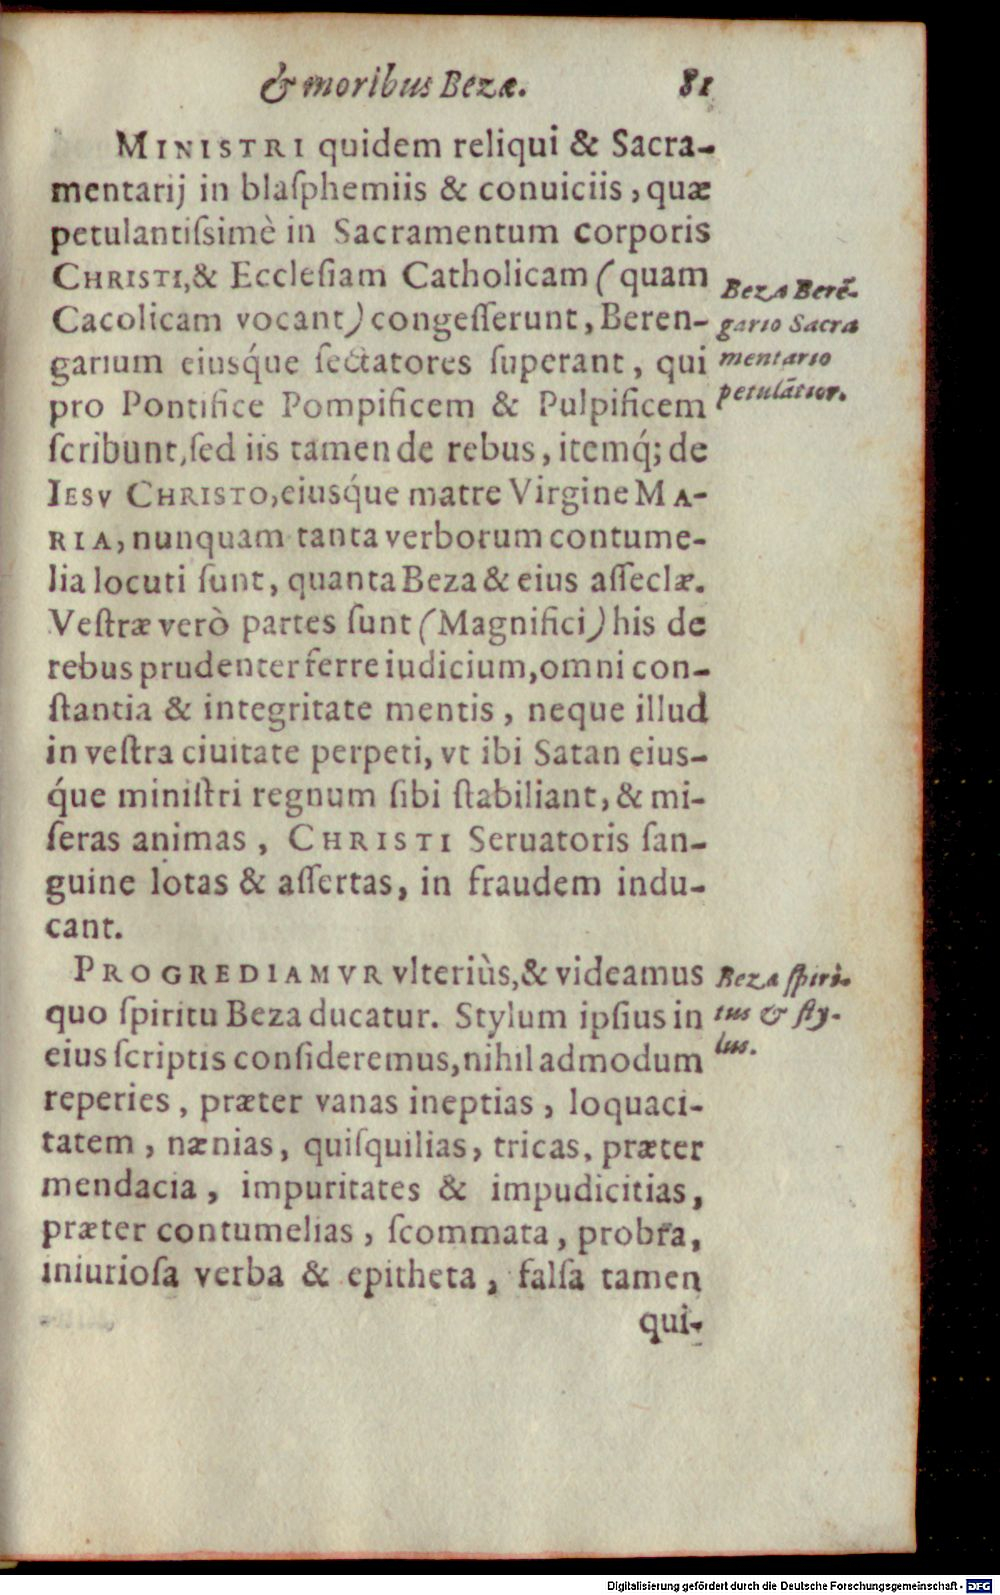 & moribus Bezæ. 81
MINISTRI quidem reliqui & Sacra-
mentarij in blaſphemiis & conuiciis, quæ
petulantiſsimè in Sacramentum corporis
CHRISTI, & Eccleſiam Catholicam (quam
Cacolicam vocant) congeſſerunt, Beren-
garium eiusq́ue ſectatores ſuperant, qui
pro Pontifice Pompificem & Pulpificem
ſcribunt, ſed iis tamen de rebus, itemq́; de
IESV CHRISTO, eiusq́ue matre Virgine MA-
RIA, nunquam tanta verborum contume-
lia locuti ſunt, quanta Beza & eius aſſeclæ.
Veſtræ verò partes ſunt (Magnifici) his de
rebus prudenter ferre iudicium, omni con-
ſtantia & integritate mentis, neque illud
in veſtra ciuitate perpeti, vt ibi Satan eius-
q́ue miniſtri regnum ſibi ſtabiliant, & mi-
ſeras animas, CHRISTI Seruatoris ſan-
guine lotas & aſſertas, in fraudem indu-
cant.
Beza Berē-
gario Sacra
mentario
petulātior.
PROGREDIAMVR vlteriùs, & videamus
quo ſpiritu Beza ducatur. Stylum ipſius in
eius ſcriptis conſideremus, nihil admodum
reperies, præter vanas ineptias, loquaci-
tatem, nænias, quiſquilias, tricas, præter
mendacia, impuritates & impudicitias,
præter contumelias, ſcommata, probra,
iniurioſa verba & epitheta, falſa tamen
Beza ſpiri-
tus & ſty-
lus.
qui-
Digitalisierung gefördert durch die Deutsche Forschungsgemeinschaft - DFG